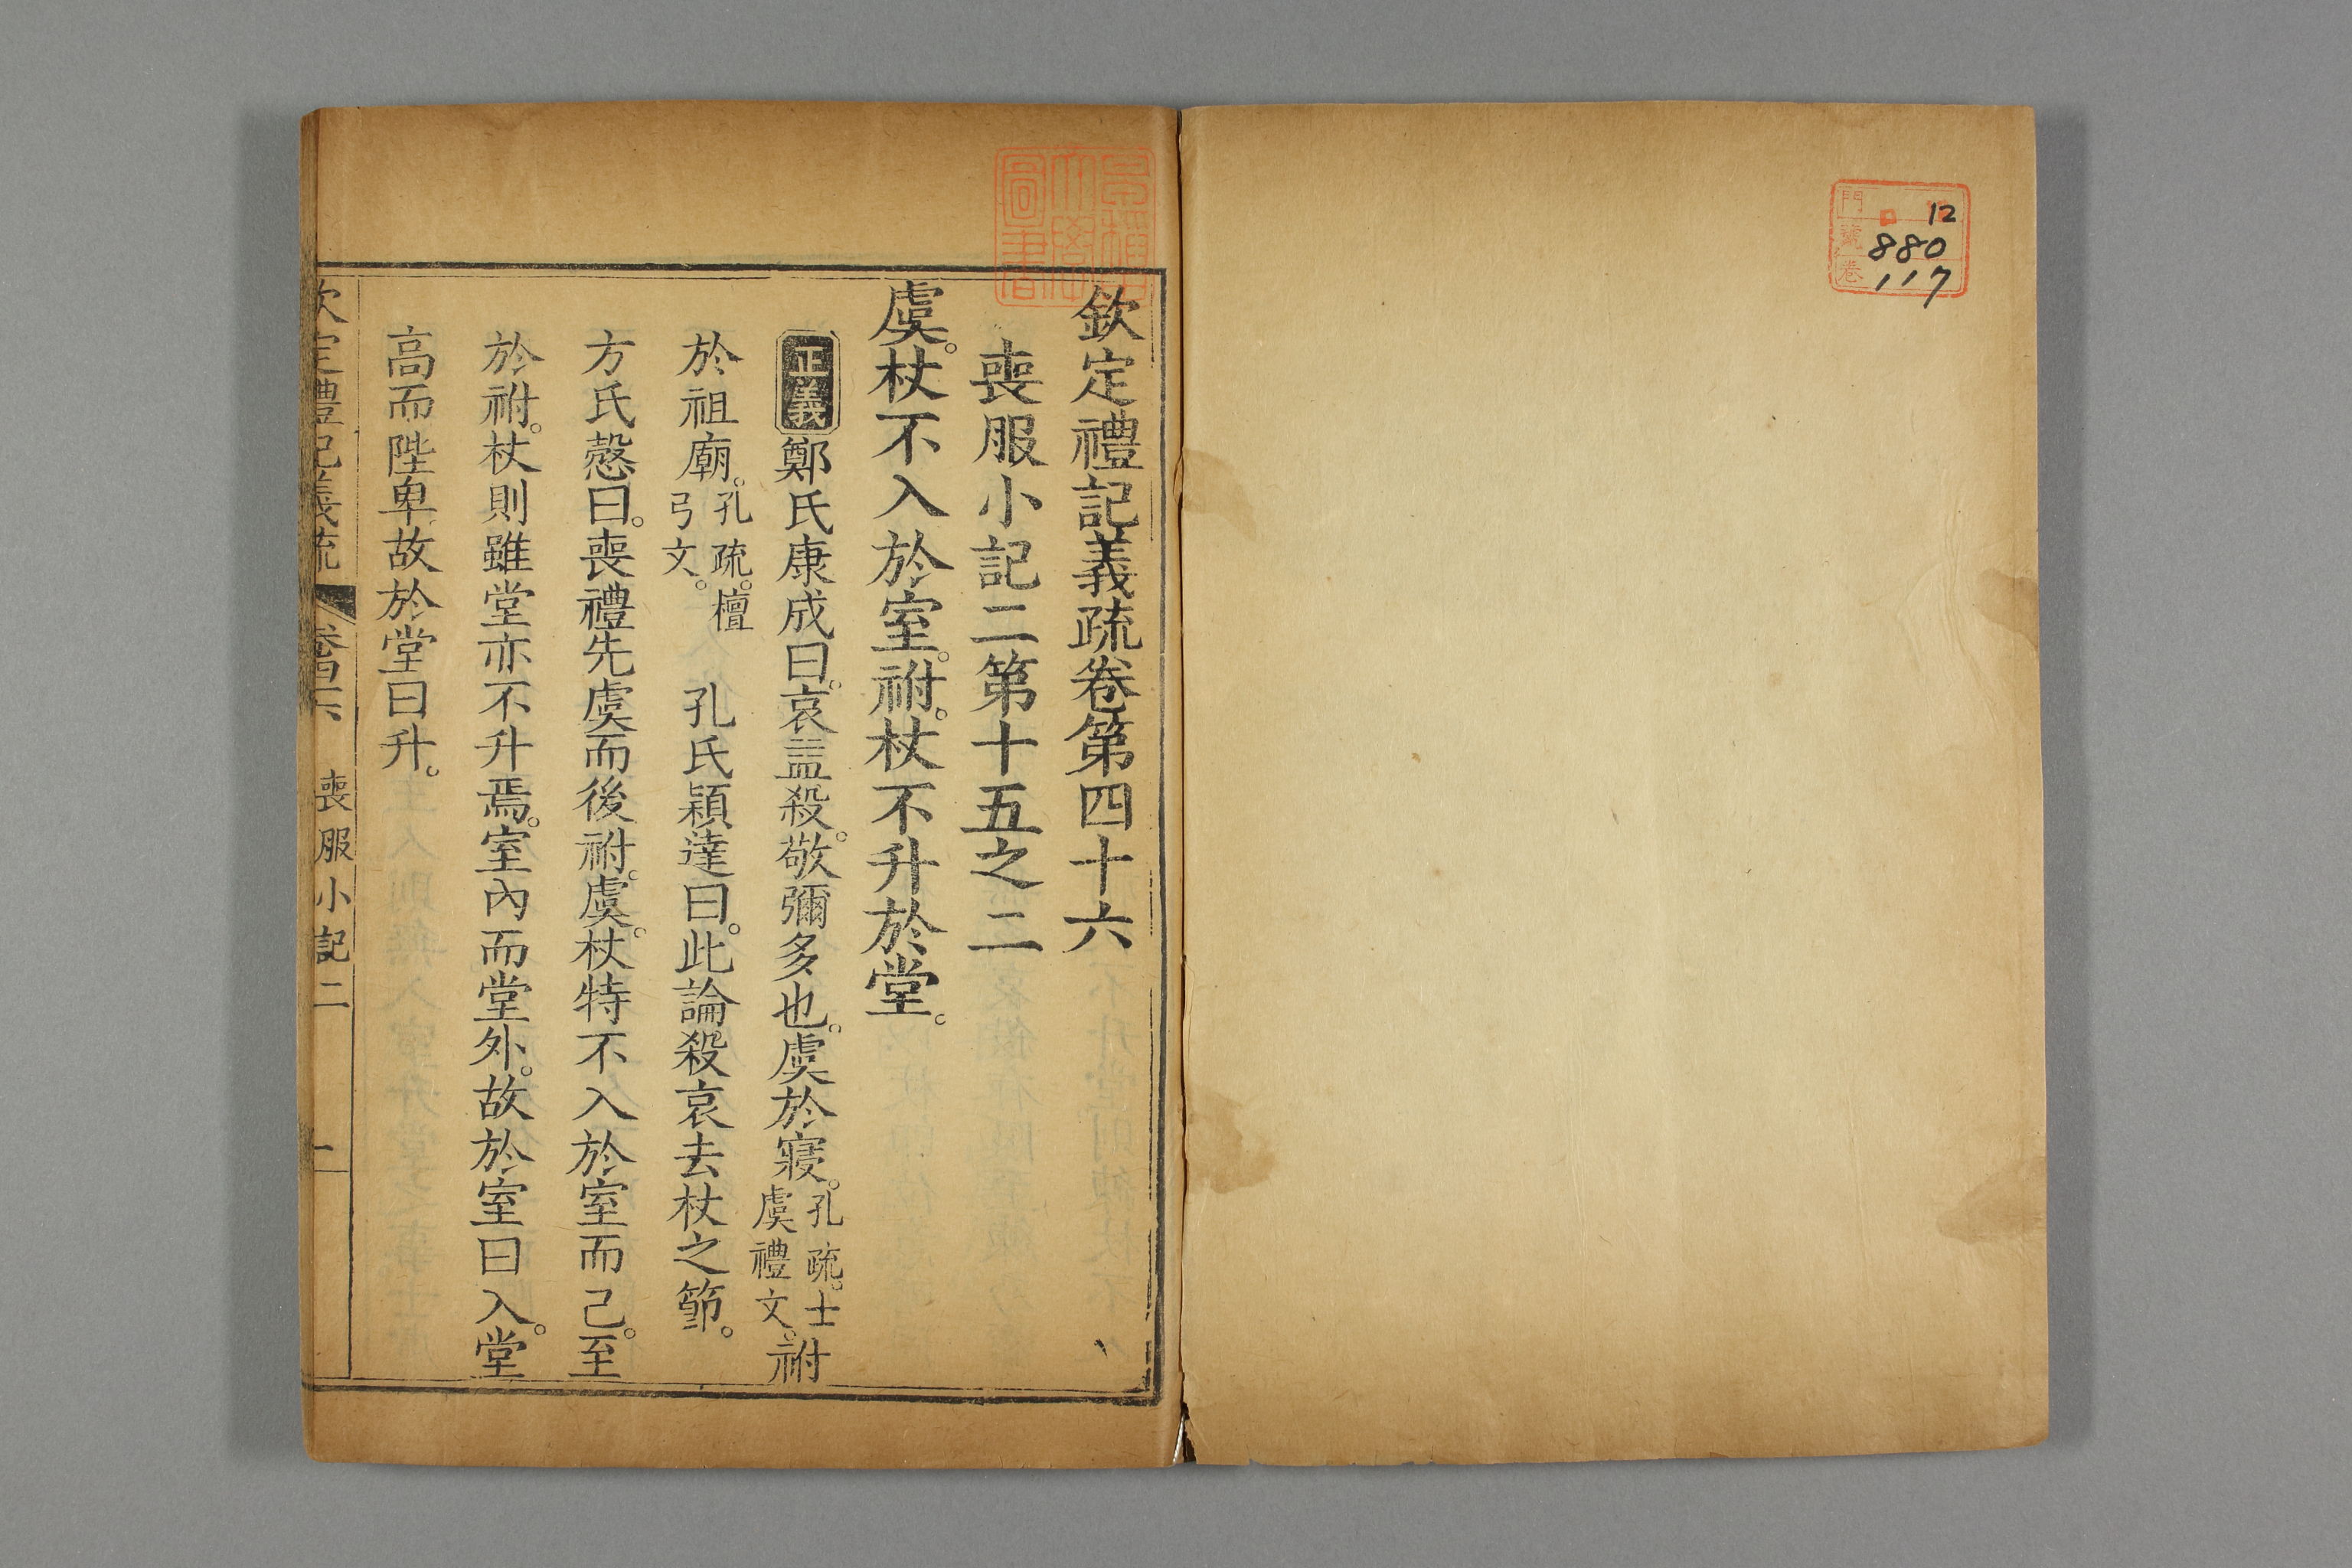 門 12
號 880
卷 117
早稲田大學圖書
欽定禮記義疏卷第四十六
喪服小記二第十五之二
虞。杖不入於室。祔。杖不升於堂。
正義 鄭氏康成曰。哀益殺。敬彌多也。虞於寢。孔疏。士虞禮文。祔
於祖廟。孔疏。檀弓文。 孔氏穎達曰。此論殺哀去杖之節。
方氏慤曰。喪禮先虞而後祔。虞。杖特不入於室而已。至
於祔。杖則雖堂亦不升焉。室內而堂外。故於室曰入。堂
高而陛卑。故於堂曰升。
欽定禮記義疏 卷四十六 喪服小記二 一